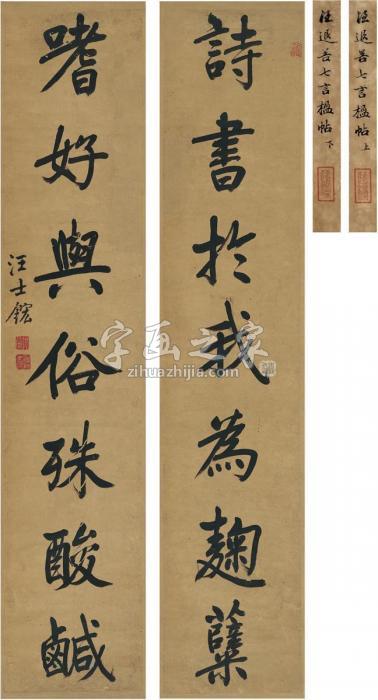 詩書於我為麹蘖
嗜好與俗殊酸鹹
汪士鋐
汪退谷七言楹帖 上
汪退谷七言楹帖 下
字画之家
zihuazhijia.com